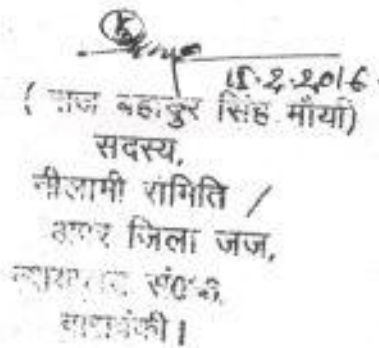 15.2.2016
( राज बहादुर सिंह मौर्या)
सदस्य,
नीलामी समिति /
अपर जिला जज,
न्यायालय सं0
बाराबंकी।